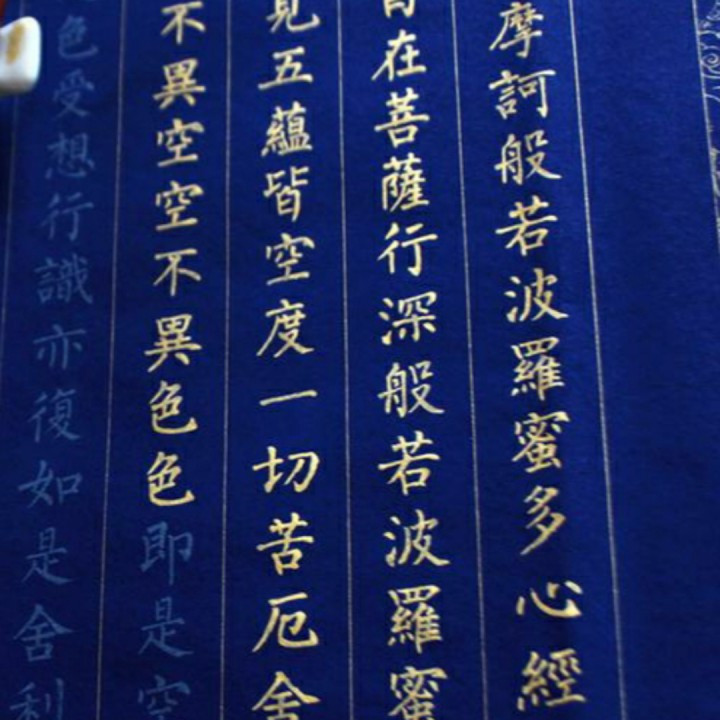 摩訶般若波羅蜜多心經
在菩薩行深般若波羅蜜
見五蘊皆空度一切苦厄舍
不異空空不異色色即是空
色受想行識亦復如是舍利